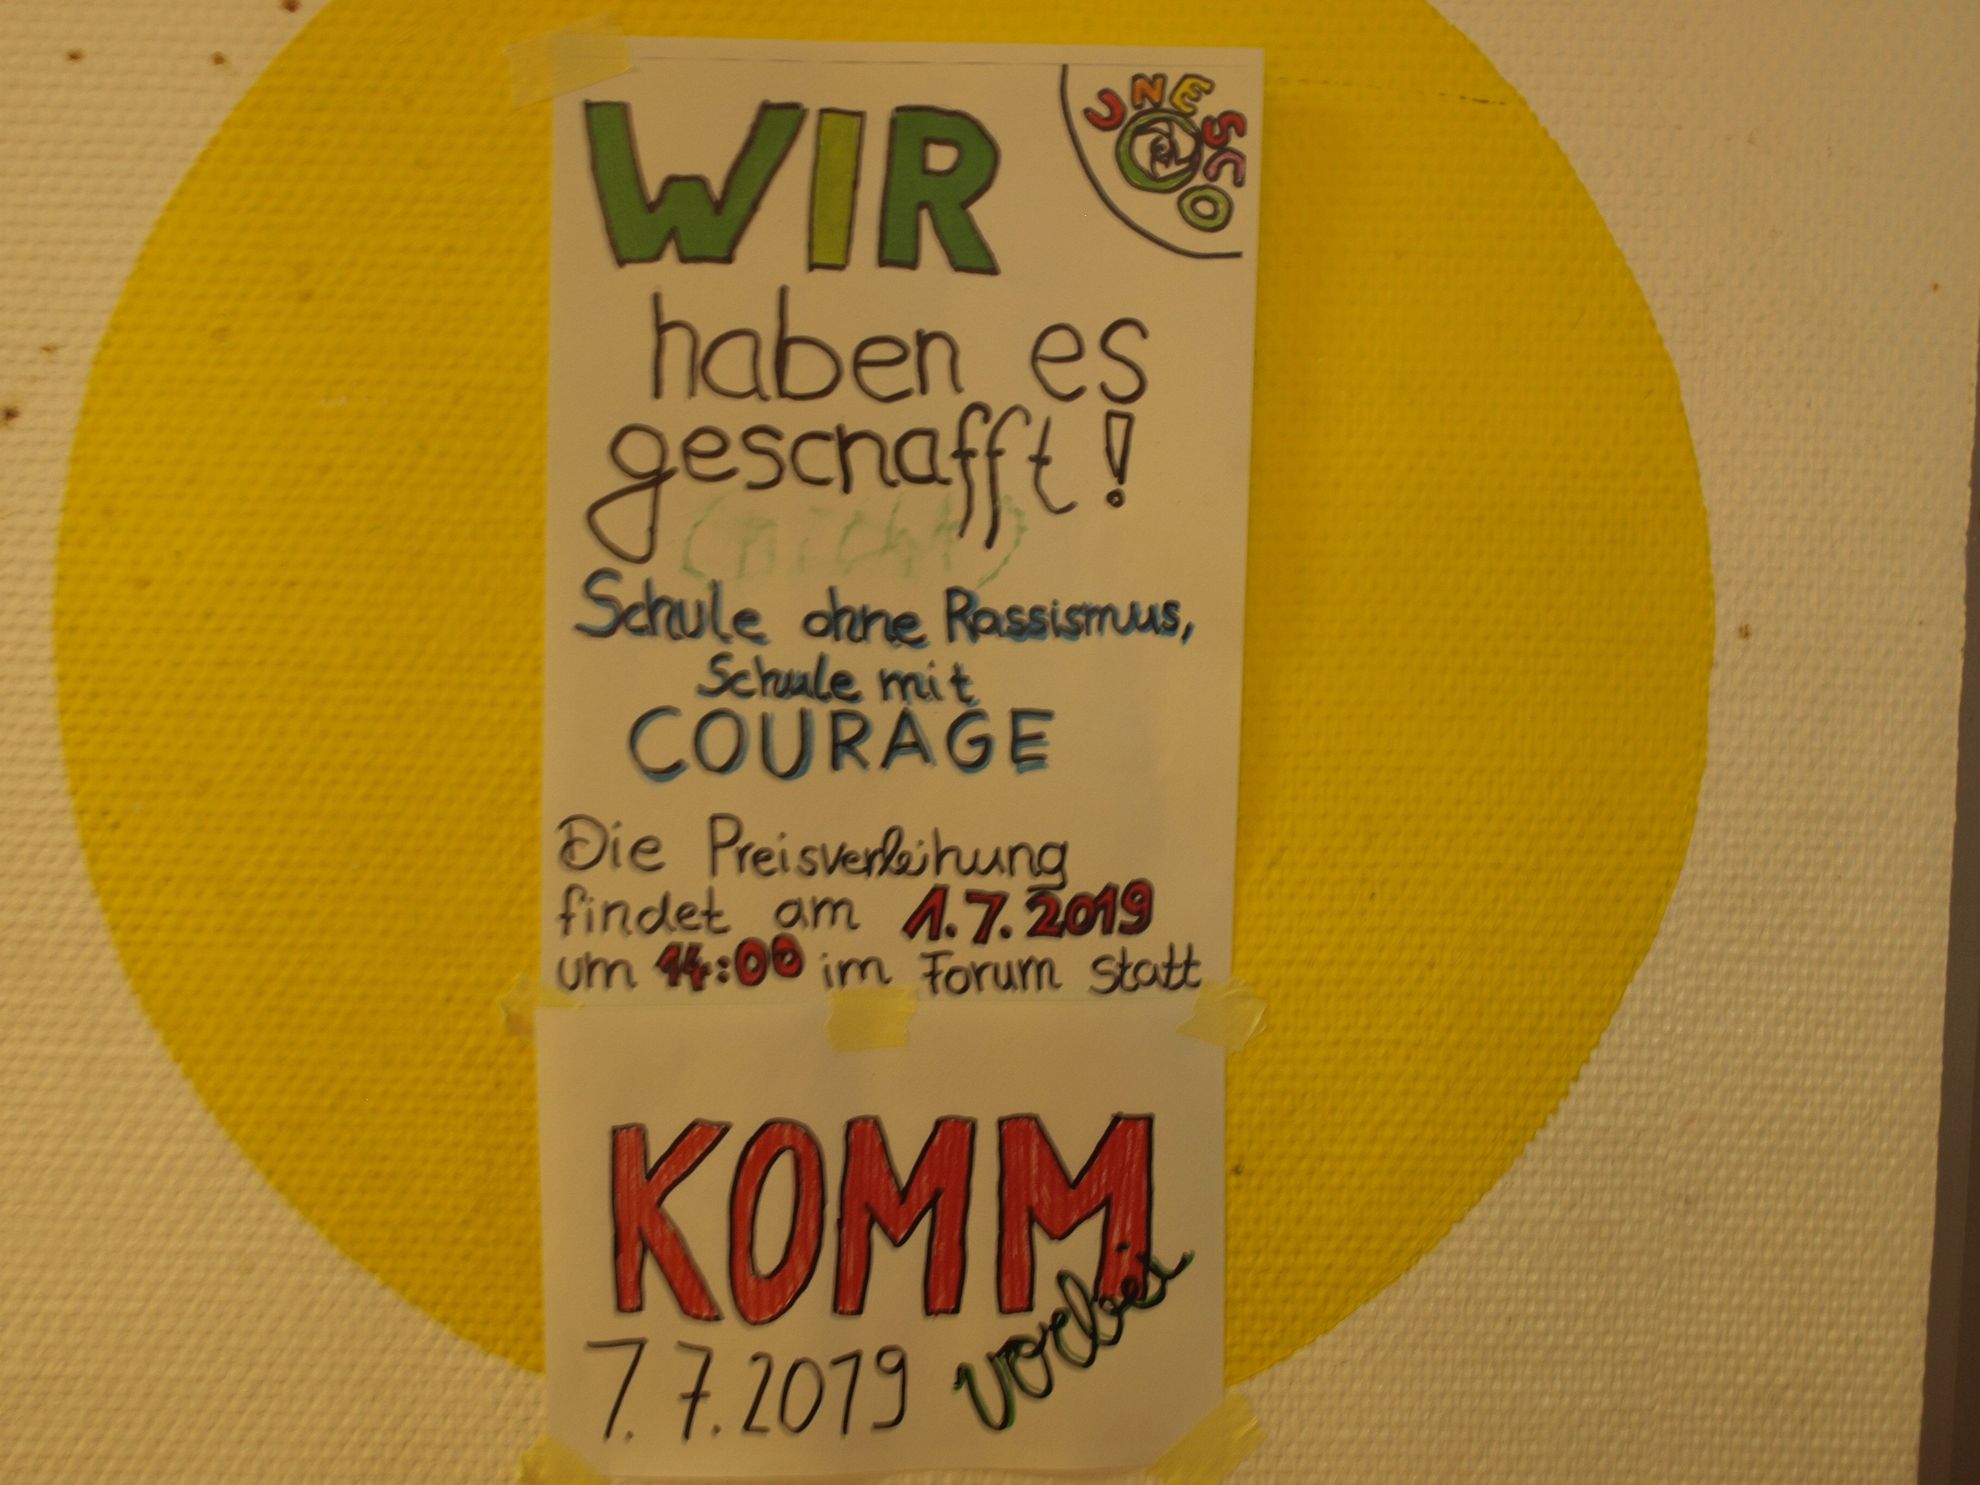 WIR
UNESCO
haben es
geschafft!
(nicht)
Schule ohne Rassismus,
Schule mit
COURAGE
Die Preisverleihung
findet am 1.7.2019
um 14:00 im Forum statt
KOMM
vorbei
1.7.2019